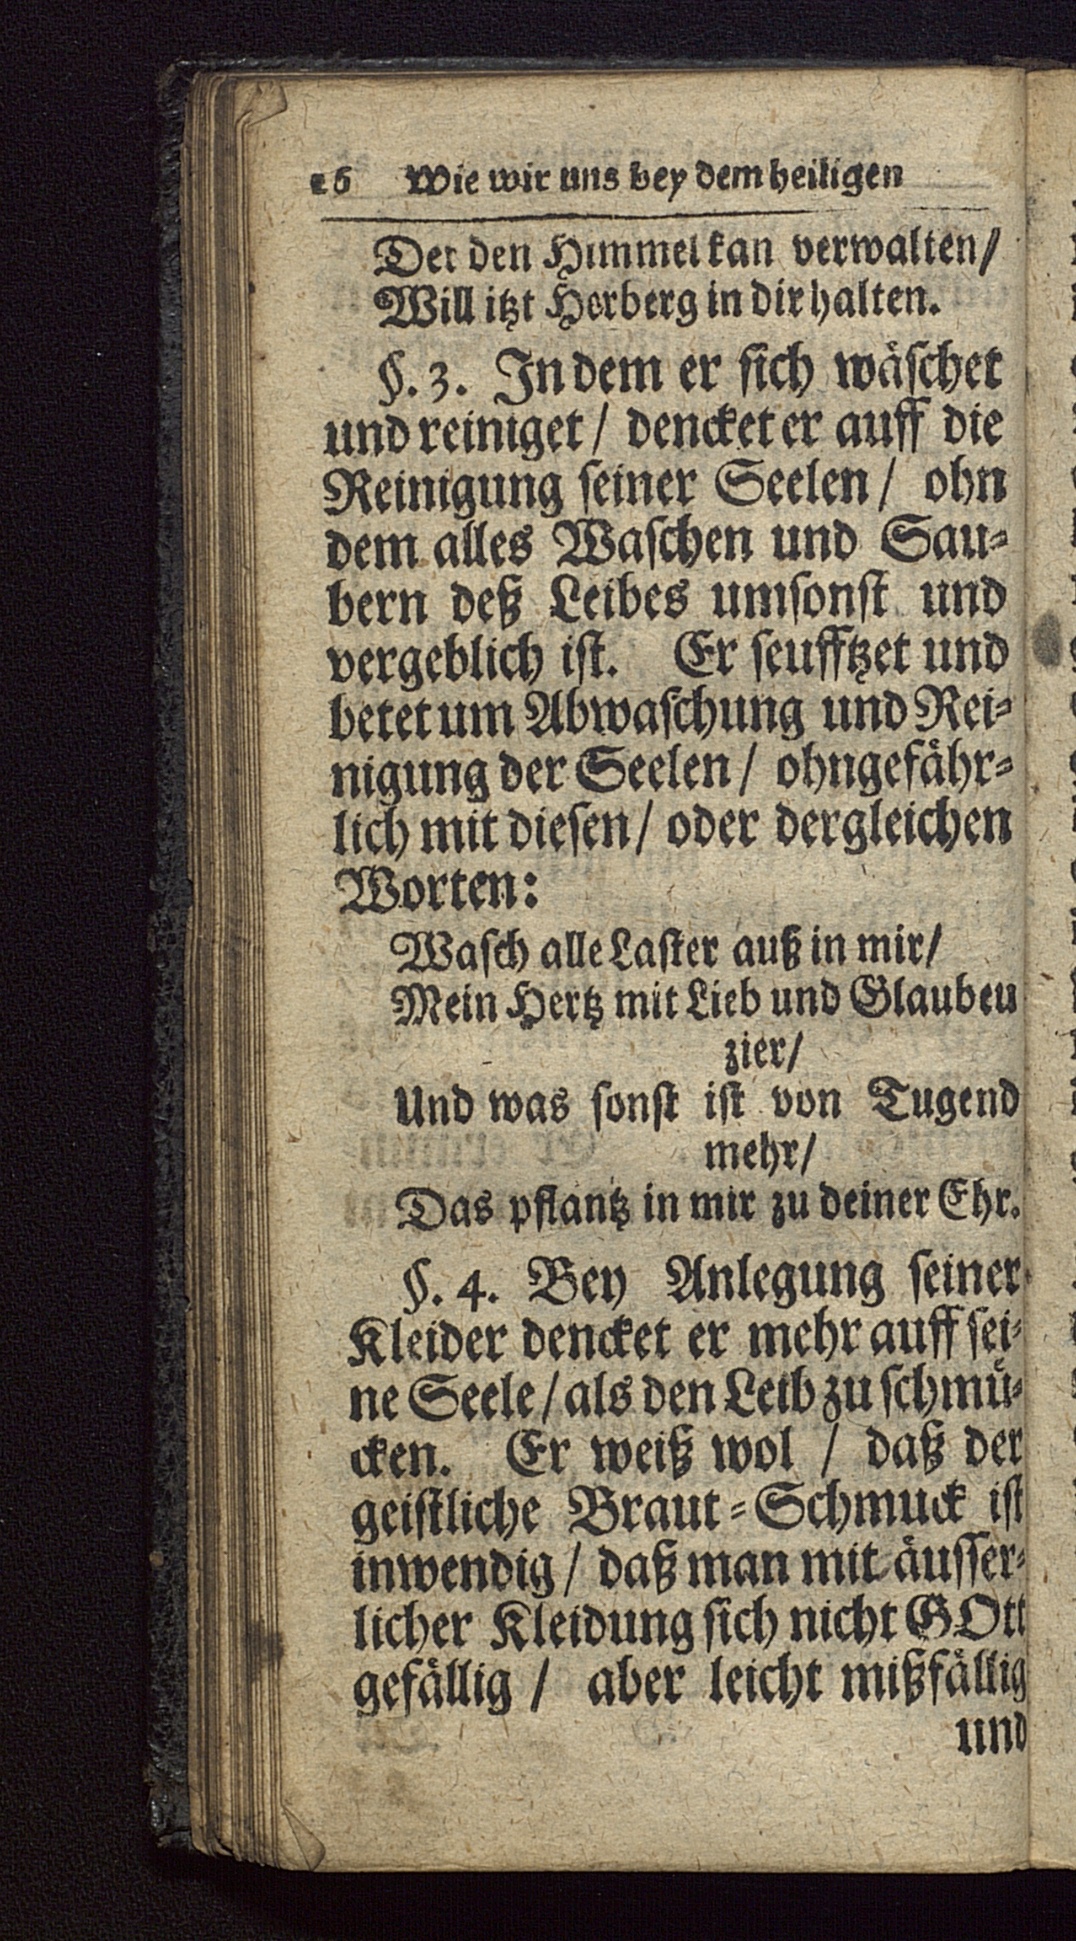 16 Wie wir uns bey dem heiligen
Der den Himmel kan verwalten/
Will itzt Herberg in dir halten.
§. 3. In dem er sich wäschet
und reiniget / dencket er auff die
Reinigung seiner Seelen / ohn
dem alles Waschen und Sau-
bern deß Leibes umsonst und
vergeblich ist. Er seufftzet und
betet um Abwaschung und Rei-
nigung der Seelen / ohngefähr-
lich mit diesen / oder dergleichen
Worten:
Wasch alle Laster auß in mir/
Mein Hertz mit Lieb und Glauben
zier/
Und was sonst ist von Tugend
mehr/
Das pflantz in mir zu deiner Ehr.
§. 4. Bey Anlegung seiner
Kleider dencket er mehr auff sei-
ne Seele / als den Leib zu schmü-
cken. Er weiß wol / daß der
geistliche Braut-Schmuck ist
inwendig / daß man mit äusser-
licher Kleidung sich nicht GOtt
gefällig / aber leicht mißfällig
und